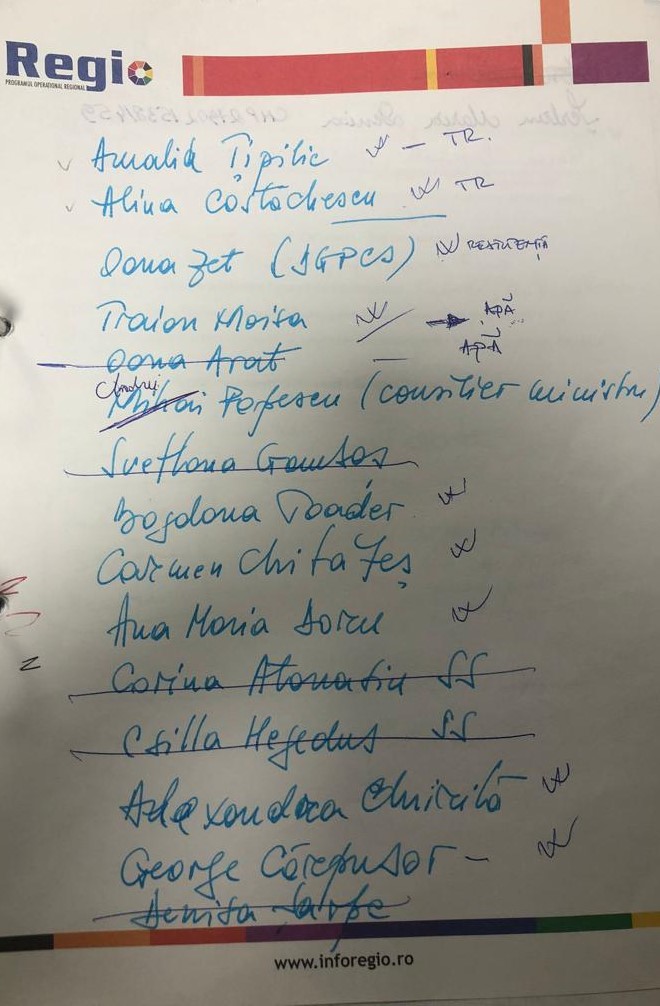 Regio
PROGRAMUL OPERAȚIONAL REGIONAL
Amalia Țipilic — TR.
Alina Costăchescu TR
Oana Zet (IGPCS) REZILIENȚĂ
Traian Moisa → APĂ
Oana Arat — APĂ
Mihai Popescu (consilier ministru)
Svetlana
Bogdana Toader
Carmen Chirta Teș
Ana Maria
Corina Atanasiu SS
Csilla Hegedus SS
Alexandra Chirilă
George Cărepușor —
Denisa Sarpe
www.inforegio.ro